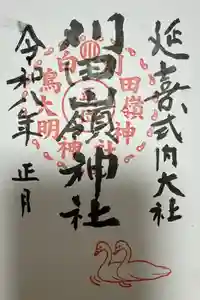 延喜式内大社
刈田嶺神社
刈田嶺神社
白鳥大明神
令和八年 正月